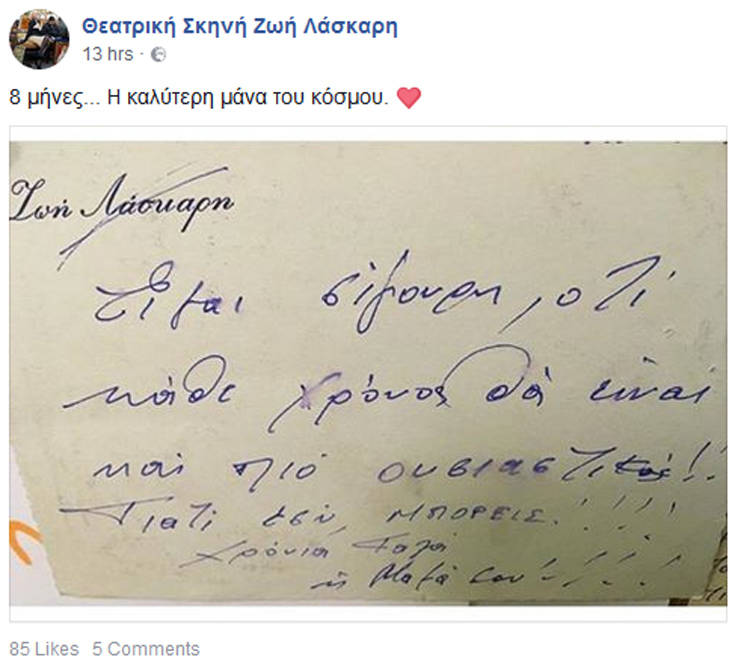 Θεατρική Σκηνή Ζωή Λάσκαρη
13 hrs ·
8 μήνες... Η καλύτερη μάνα του κόσμου. ❤
Ζωή Λάσκαρη
Είμαι σίγουρη, ότι
κάθε χρόνος θά είναι
και πιό ουσιαστικός!!
Γιατί εσύ, ΜΠΟΡΕΙΣ!!!!
Χρόνια Καλά
η Μαμά σου!!!!!
85 Likes 5 Comments